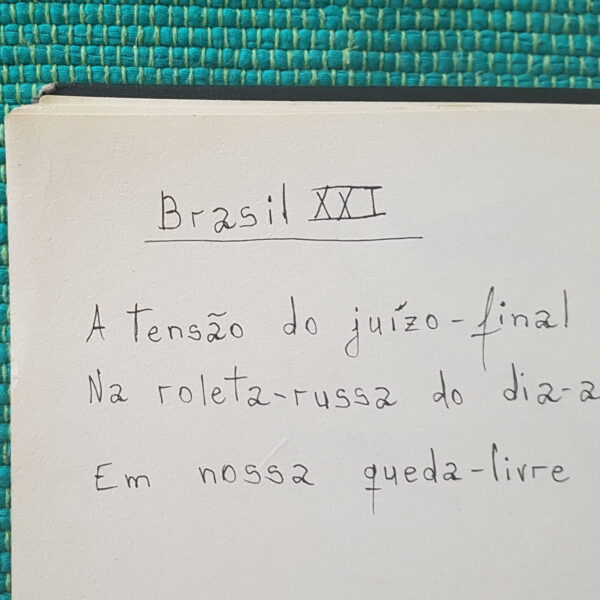 Brasil XXI
A tensão do juízo-final
Na roleta-russa do dia-a
Em nossa queda-livre